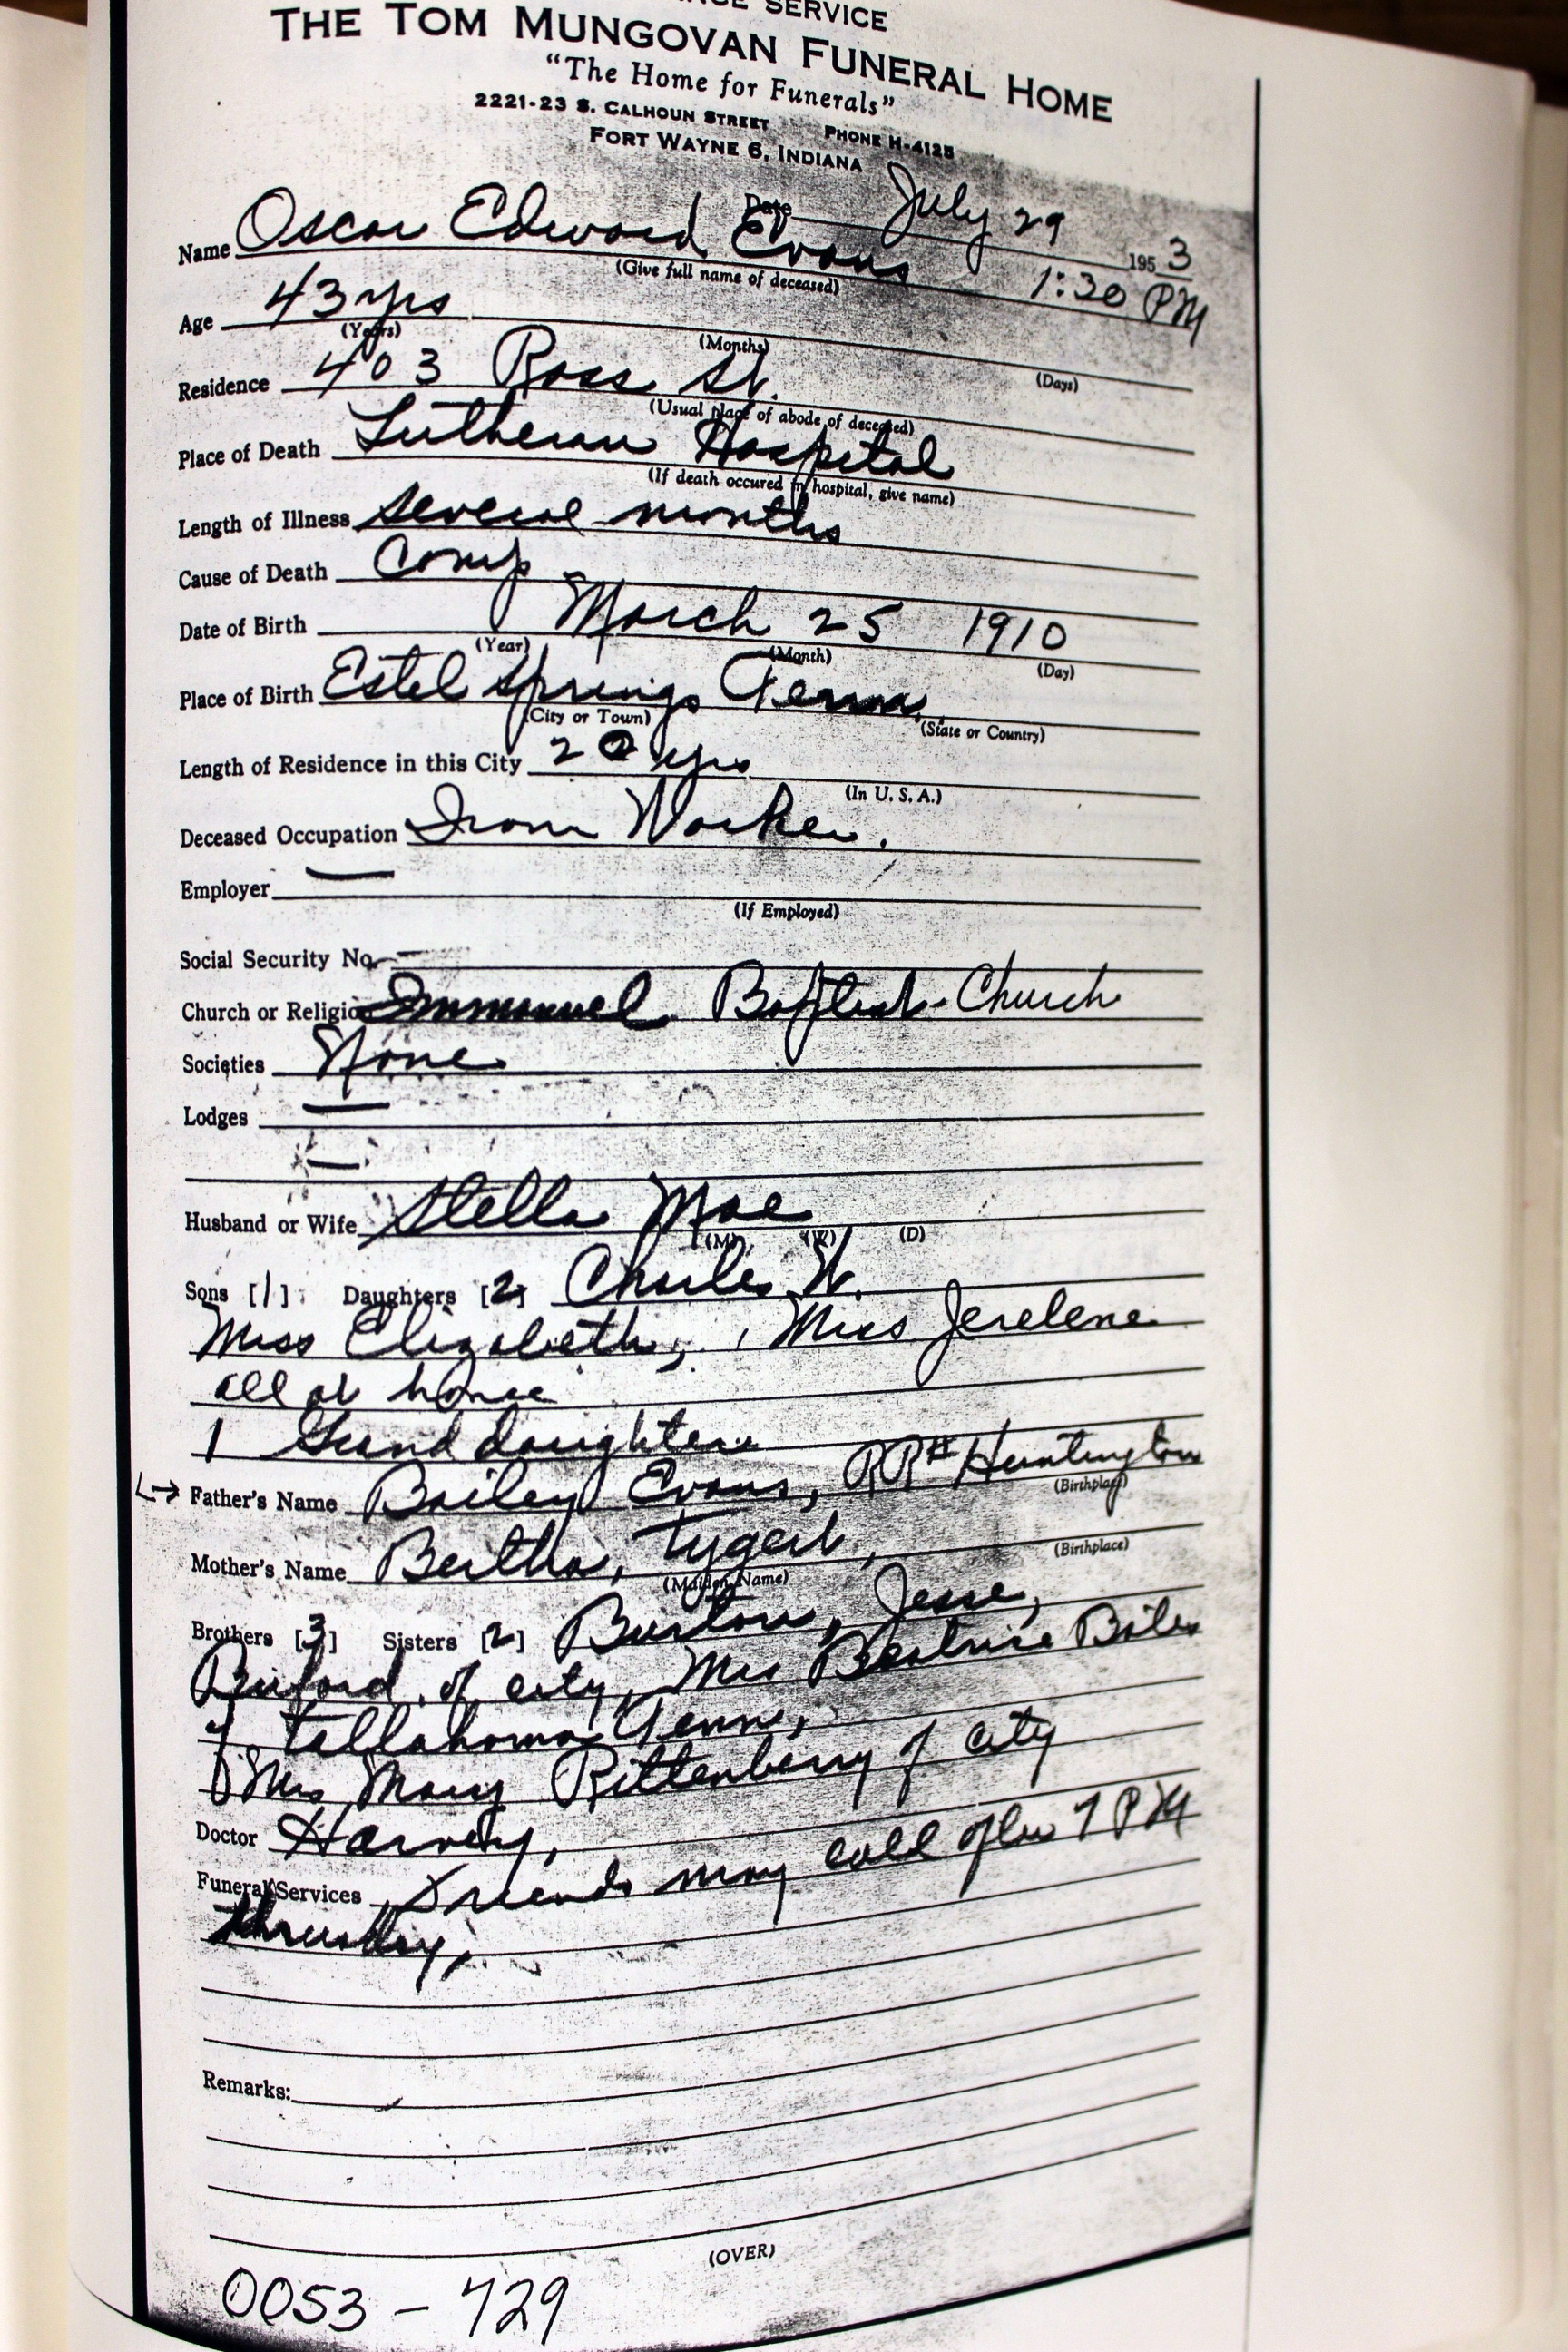 SERVICE
THE TOM MUNGOVAN FUNERAL HOME
"The Home for Funerals"
2221-23 S. CALHOUN STREET PHONE H-4125
FORT WAYNE 6, INDIANA
Date July 29 1953
Name Oscar Edward Evans 1:30 PM
(Give full name of deceased)
Age 43 yrs
(Years) (Months) (Days)
Residence 403 Ross St.
(Usual place of abode of deceased)
Place of Death Lutheran Hospital
(If death occured in hospital, give name)
Length of Illness several months
Cause of Death Comp
Date of Birth March 25 1910
(Year) (Month) (Day)
Place of Birth Estel Springs Tenn.
(City or Town) (State or Country)
Length of Residence in this City 20 yrs
(In U. S. A.)
Deceased Occupation Iron Worker.
Employer —
(If Employed)
Social Security No. —
Church or Religion Emmanuel Baptist Church
Societies None
Lodges —
—
Husband or Wife Stella Mae
(M) (W) (D)
Sons [1] Daughters [2] Charles W.
Miss Elizabeth, Miss Jerelene
all at home
1 Grand daughter
Father's Name Bailey Evans, RR# Huntington
(Birthplace)
Mother's Name Bertha, Tygert,
(Maiden Name) (Birthplace)
Brothers [3] Sisters [2] Burton, Jesse,
Buford, of city, Mrs Beatrice Biles
of tullahoma Tenn,
Mrs Mary Rittenberry of city
Doctor Harvey,
Funeral Services Friends may call after 7 PM
thrusday,
Remarks:
(OVER)
0053 - 729